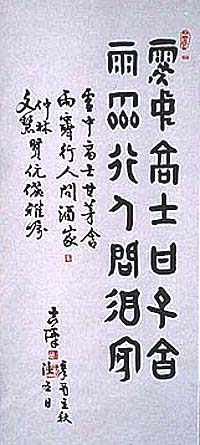 雪中高士甘茅舍
雨齊行人問酒家
雪中高士甘茅舍
雨齊行人問酒家
仲林
文慧賢伉儷雅囑
立秋